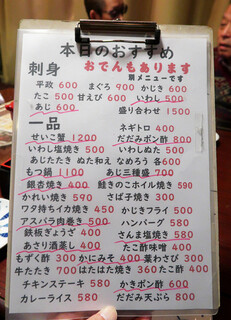 本日のおすすめ
刺身 おでんもあります
別メニューです
平政 600 まぐろ 900 かじき 600
たこ 500 甘えび 600 いわし 500
あじ 600 盛り合わせ 1500
一品 ネギトロ 400
せいこ蟹 1200 だだみポン酢 800
いわし塩焼き 500 いわしぬた 500
あじたたき ぬた和え なめろう 各600
もつ鍋 1100 あじ三種盛 700
銀杏焼き 400 鮭きのこホイル焼き 590
かれい焼き 590 さばチ焼き 300
ワタ持ちイカ焼き 450 かじきフライ 500
アスパラ肉巻き 500 ハンバーグ 580
鉄板ぎょうざ 400 さんま塩焼き 580
あさり酒蒸し 400 たこ酢味噌 400
もずく酢 300 かにみそ 400 葉わさび 300
牛たたき 700 はたはた焼き 360 たこ酢 400
チキンステーキ 580 かきポン酢 600
カレーライス 580 だだみ天ぷら 800